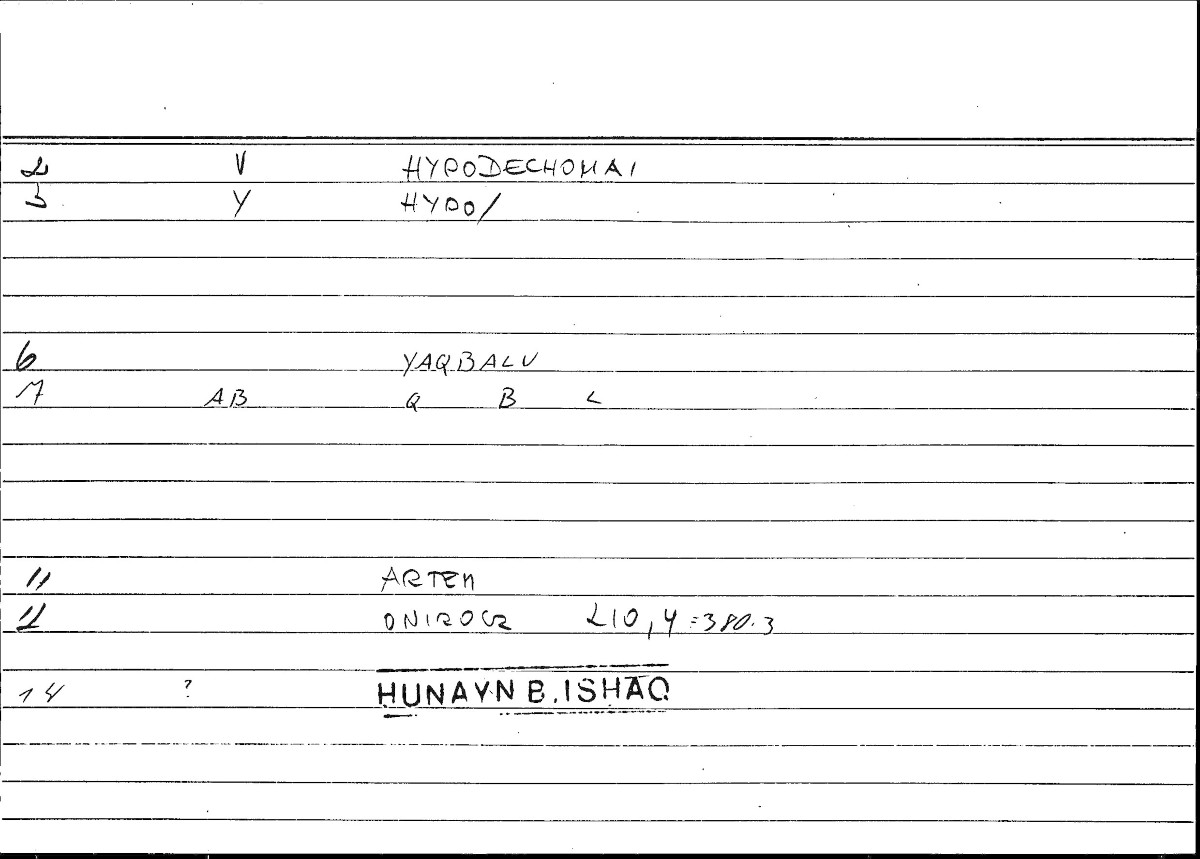 2 V HYPODECHOMAI
3 Y HYPO/
6 YAQBALU
7 AB Q B L
11 ARTEM
12 ONIROCR 210,4=380.3
14 ? HUNAYN B. ISHAQ